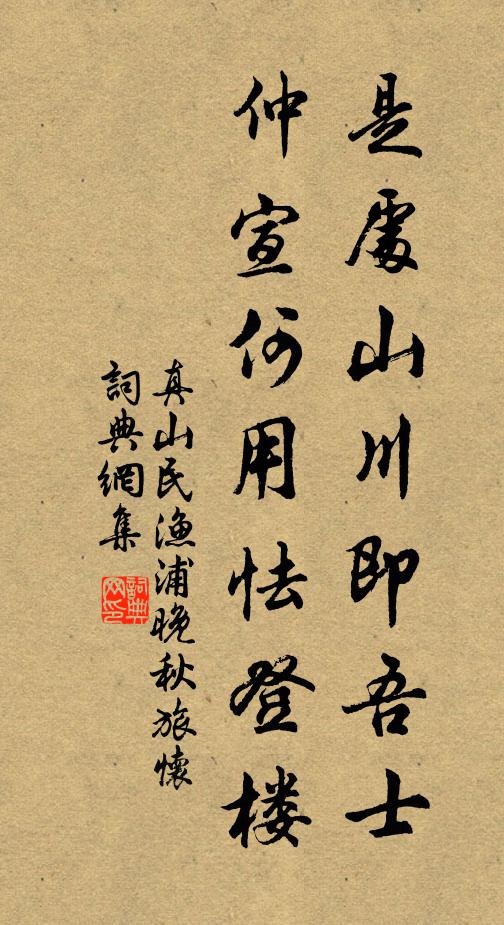 是處山川即吾士
仲宣何用怯登樓
真山民漁浦晚秋旅懷
詞典網集
詞典網印